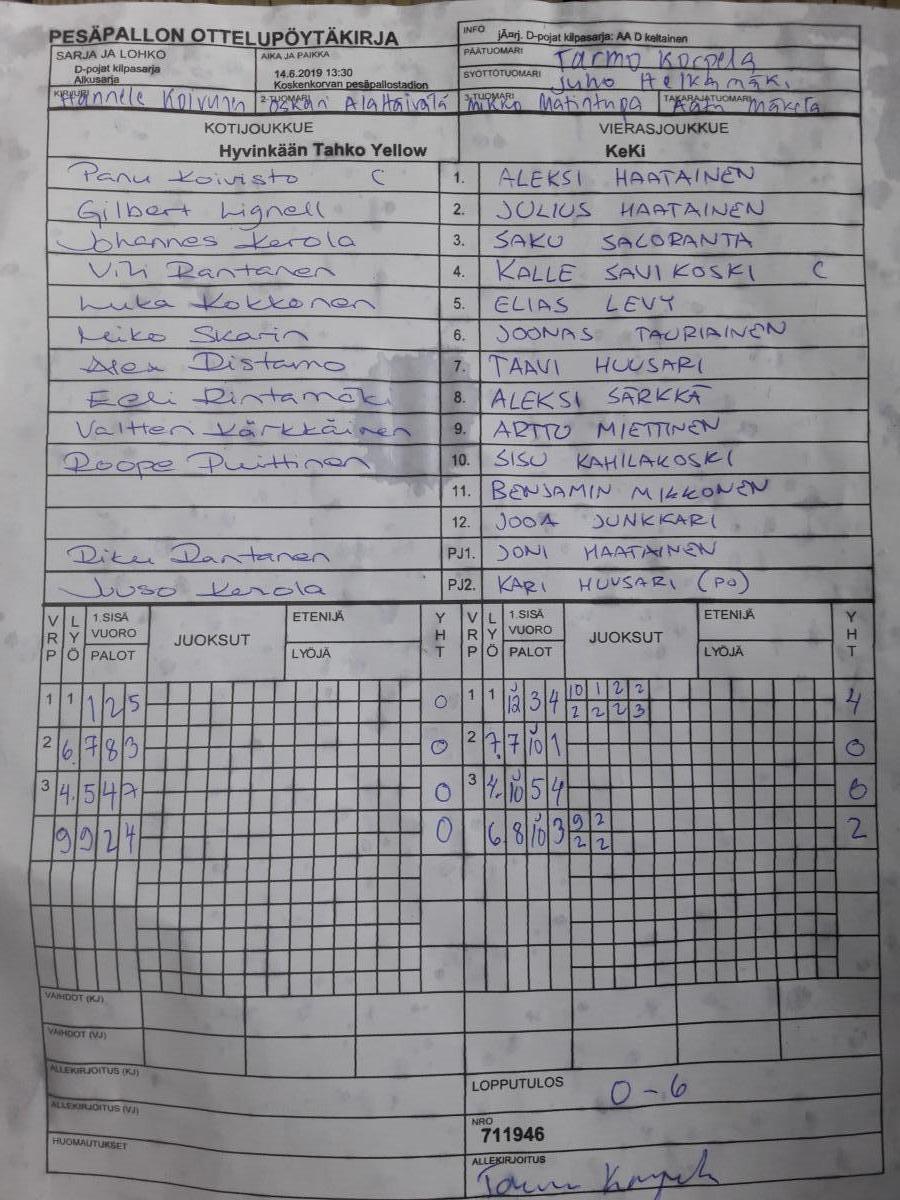 PESÄPALLON OTTELUPÖYTÄKIRJA
INFO jÄørj. D-pojat kilpasarja: AA D keltainen
SARJA JA LOHKO
D-pojat kilpasarja
Alkusarja
AIKA JA PAIKKA
14.6.2019 13:30
Koskenkorvan pesäpallostadion
PÄÄTUOMARI Tarmo Korpela
SYÖTTÖTUOMARI Juho Helkamäki
KIRJURI Hannele Koivunen 2-TUOMARI Oskari Alataivala 3-TUOMARI Mikko Matintupa TAKARAJATUOMARI Aatu Mäkelä
KOTIJOUKKUE
Hyvinkään Tahko Yellow
VIERASJOUKKUE
KeKi
Panu Koivisto C 1. ALEKSI HAATAINEN
Gilbert Lignell 2. JULIUS HAATAINEN
Johannes Kerola 3. SAKU SALORANTA
Vili Rantanen 4. KALLE SAVIKOSKI C
Luka Kokkonen 5. ELIAS LEVY
Meiko Skarin 6. JOONAS TAURIAINEN
Alex Distamo 7. TAAVI HUUSARI
Eeli Rintamäki 8. ALEKSI SÄRKKÄ
Valtteri Kärkkäinen 9. ARTTO MIETTINEN
Roope Puittinen 10. SISU KAHILAKOSKI
11. BENJAMIN MIKKONEN
12. JOOA JUNKKARI
Riku Rantanen PJ1. JONI HAATAINEN
Juuso Kerola PJ2. KARI HUUSARI (PO)
VRP LYÖ 1.SISÄ VUORO PALOT JUOKSUT ETENIJÄ LYÖJÄ YHT VRP LYÖ 1.SISÄ VUORO PALOT JUOKSUT ETENIJÄ LYÖJÄ YHT
1 1 1 2 5 0 1 1 12 3 4 10 1 2 2 4
2 2 2 3
2 6. 7 8 3 0 2 7. 7 10 1 0
3 4. 5 4 7 0 3 4. 10 5 4 0
9 9 2 4 0 6 8 10 3 9 2 2
2 2
VAIHDOT (KJ)
VAIHDOT (VJ)
ALLEKIRJOITUS (KJ)
LOPPUTULOS 0-6
ALLEKIRJOITUS (VJ)
NRO
711946
HUOMAUTUKSET
ALLEKIRJOITUS